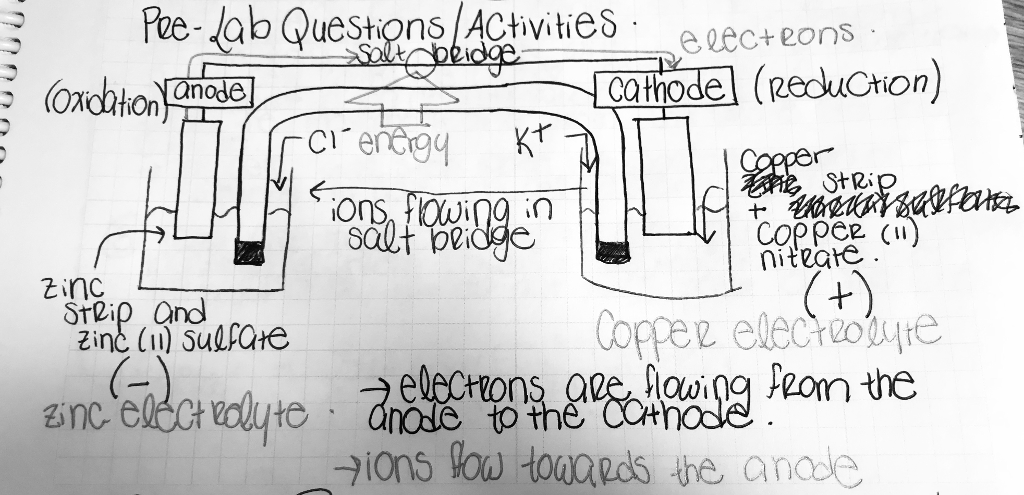 Pre-Lab Questions/Activities.
salt bridge
electrons.
(oxidation)
anode
cathode
(Reduction)
Cl-
energy
K+
ions flowing in
salt bridge
copper
strip
+
copper (11)
nitrate.
(+)
copper electrolyte
zinc
strip and
zinc (11) sulfate
(-)
zinc electrolyte.
→ electrons are flowing from the
anode to the cathode.
→ ions flow towards the anode